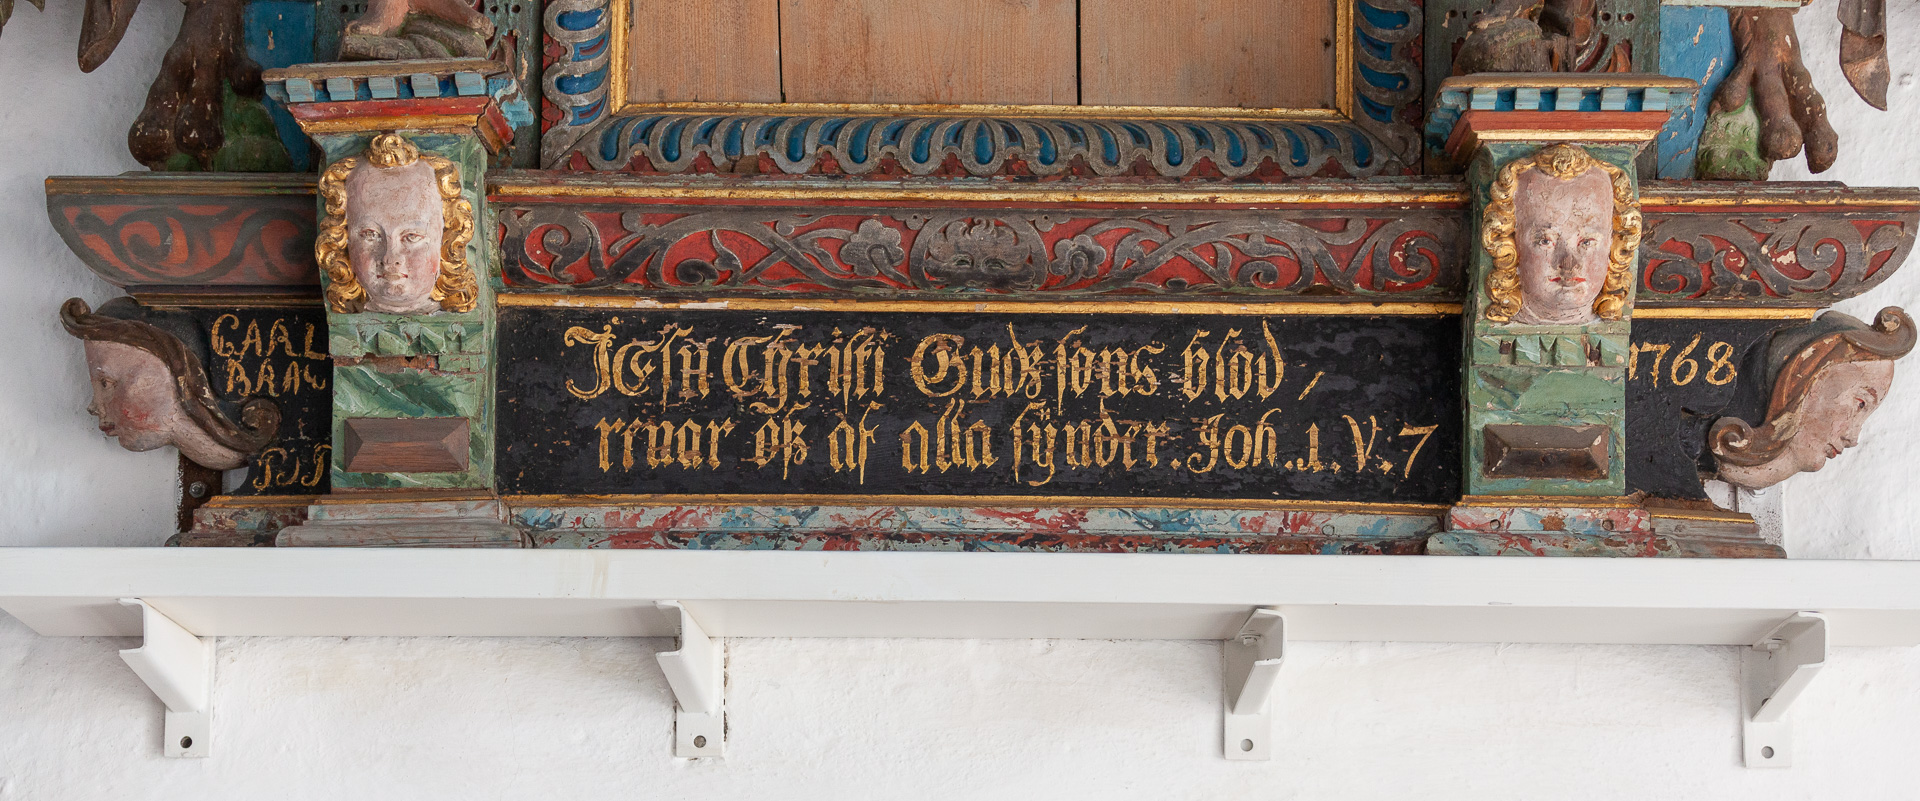 CARL
BRAW
PIT
JEsu Christi Gudz sons blod /
renar oß af alla sÿnder. Joh. 1. V. 7
1768